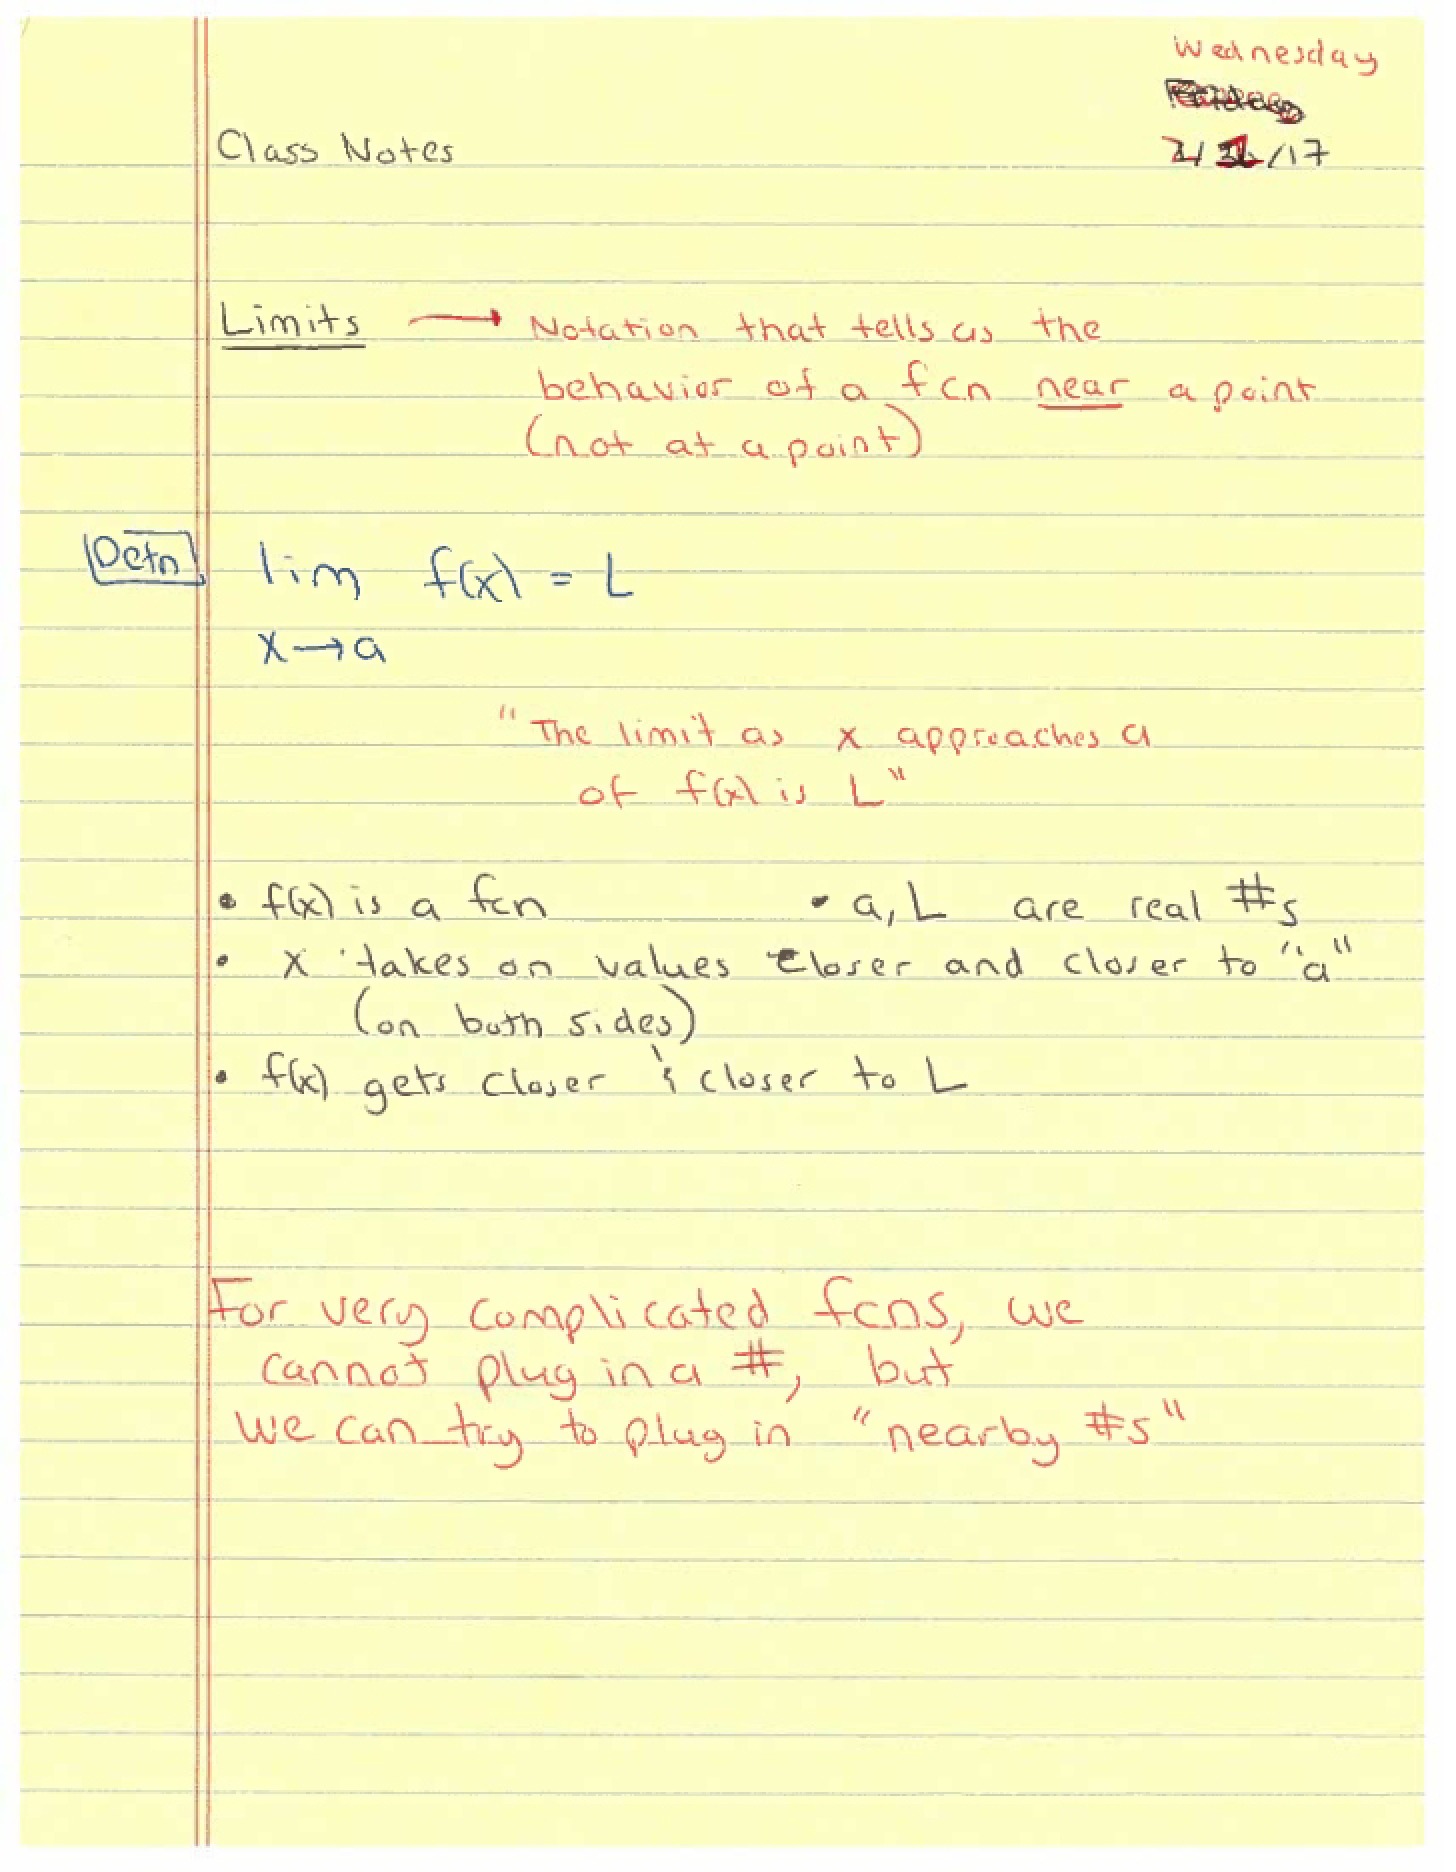 Wednesday
Class Notes
2/1/17
Limits → Notation that tells us the
behavior of a fcn near a point
(not at a point)
Defn lim f(x) = L
x→a
"The limit as x approaches a
of f(x) is L"
• f(x) is a fcn • a, L are real #s
• x takes on values closer and closer to "a"
(on both sides)
• f(x) gets closer & closer to L
For very complicated fcns, we
cannot plug in a #, but
we can try to plug in "nearby #s"